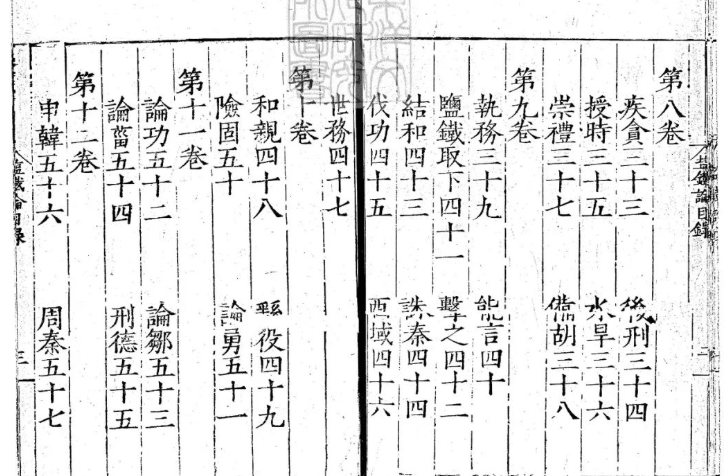 塩鐵論目録
二
第八卷
疾貪三十三　後刑三十四
授時三十五　水旱三十六
崇禮三十七　備胡三十八
第九卷
執務三十九　能言四十
鹽鐵取下四十一　擊之四十二
結和四十三　誅秦四十四
伐功四十五　西域四十六
第十卷
世務四十七
和親四十八　役四十九
險固五十　論勇五十一
第十一卷
論功五十二　論鄒五十三
論菑五十四　刑德五十五
第十二卷
申韓五十六　周秦五十七
塩鐵論目錄
三